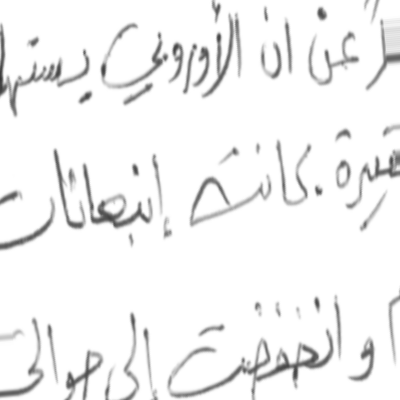 عن ان الأوروبي يستها
قيرة. كانت إنبعاثات
و انخفضت إلى حوالى